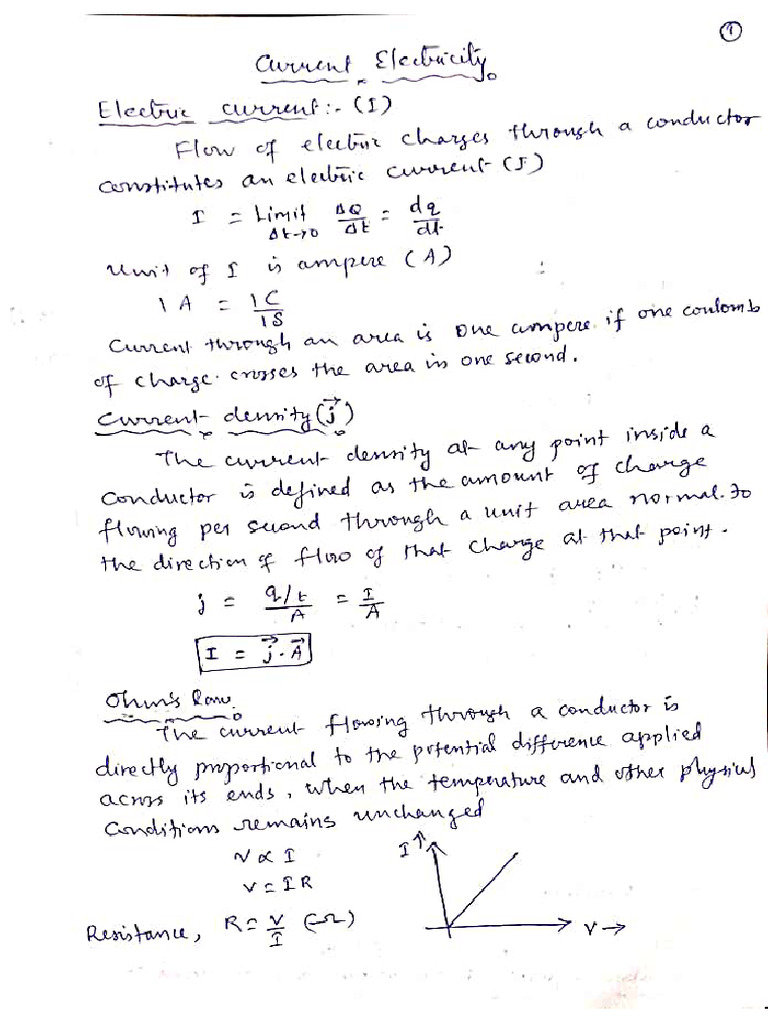 1
Current Electricity
Electric current :- (I)
Flow of electric charges through a conductor
constitutes an electric current (I)
I = Limit Δt→0 ΔQ/Δt = dq/dt
Unit of I is ampere (A)
1 A = 1C/1S
Current through an area is one ampere if one coulomb
of charge crosses the area in one second.
Current density (j⃗)
The current density at any point inside a
conductor is defined as the amount of charge
flowing per second through a unit area normal to
the direction of flow of that charge at that point.
j = (q/t)/A = I/A
I = j⃗ . A⃗
Ohm's law
The current flowing through a conductor is
directly proportional to the potential difference applied
across its ends, when the temperature and other physical
conditions remains unchanged
V ∝ I
V = IR
I↑
Resistance, R = V/I (Ω)
V→